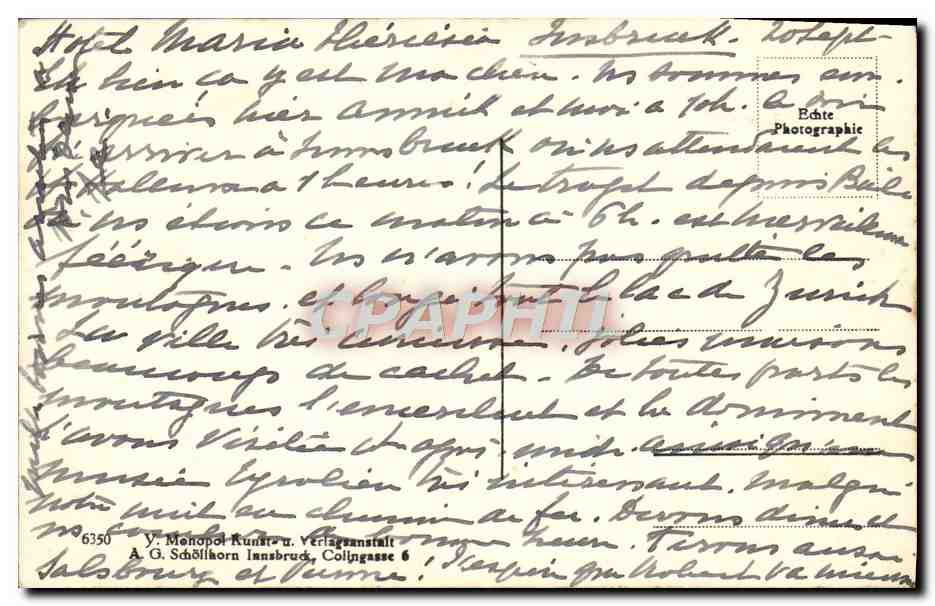 Hotel Maria Thérésia Innsbruck. 20 Sept
Eh bien ça y est ma chère. Ns sommes em-
barquées hier Annick et moi à 10h. ce soir
arriver à Innsbruck où ns attendaient les
à 1 heures! Le trajet depuis Bâle
où ns étions ce matin à 6h. est merveilleux
féérique. Ns n'avons pas quitté les
montagnes et longé tout le lac de Zurich
La ville très curieuse, jolies maisons
beaucoup de cachet. De toutes parts les
montagnes l'encerclent et la dominent
J'avons visité et après-midi
musée Tyrolien très intéressant. Malgré
notre nuit en chemin de fer. Devons dîner et
ns coucher de bonne heure. Ferons aussi
Salsbourg et Vienne! J'espère que Robert va mieux
Echte
Photographie
CPAPHIL
6350 V. Monopol Kunst- u. Verlagsanstalt
A. G. Schöllhorn Innsbruck, Colingasse 6